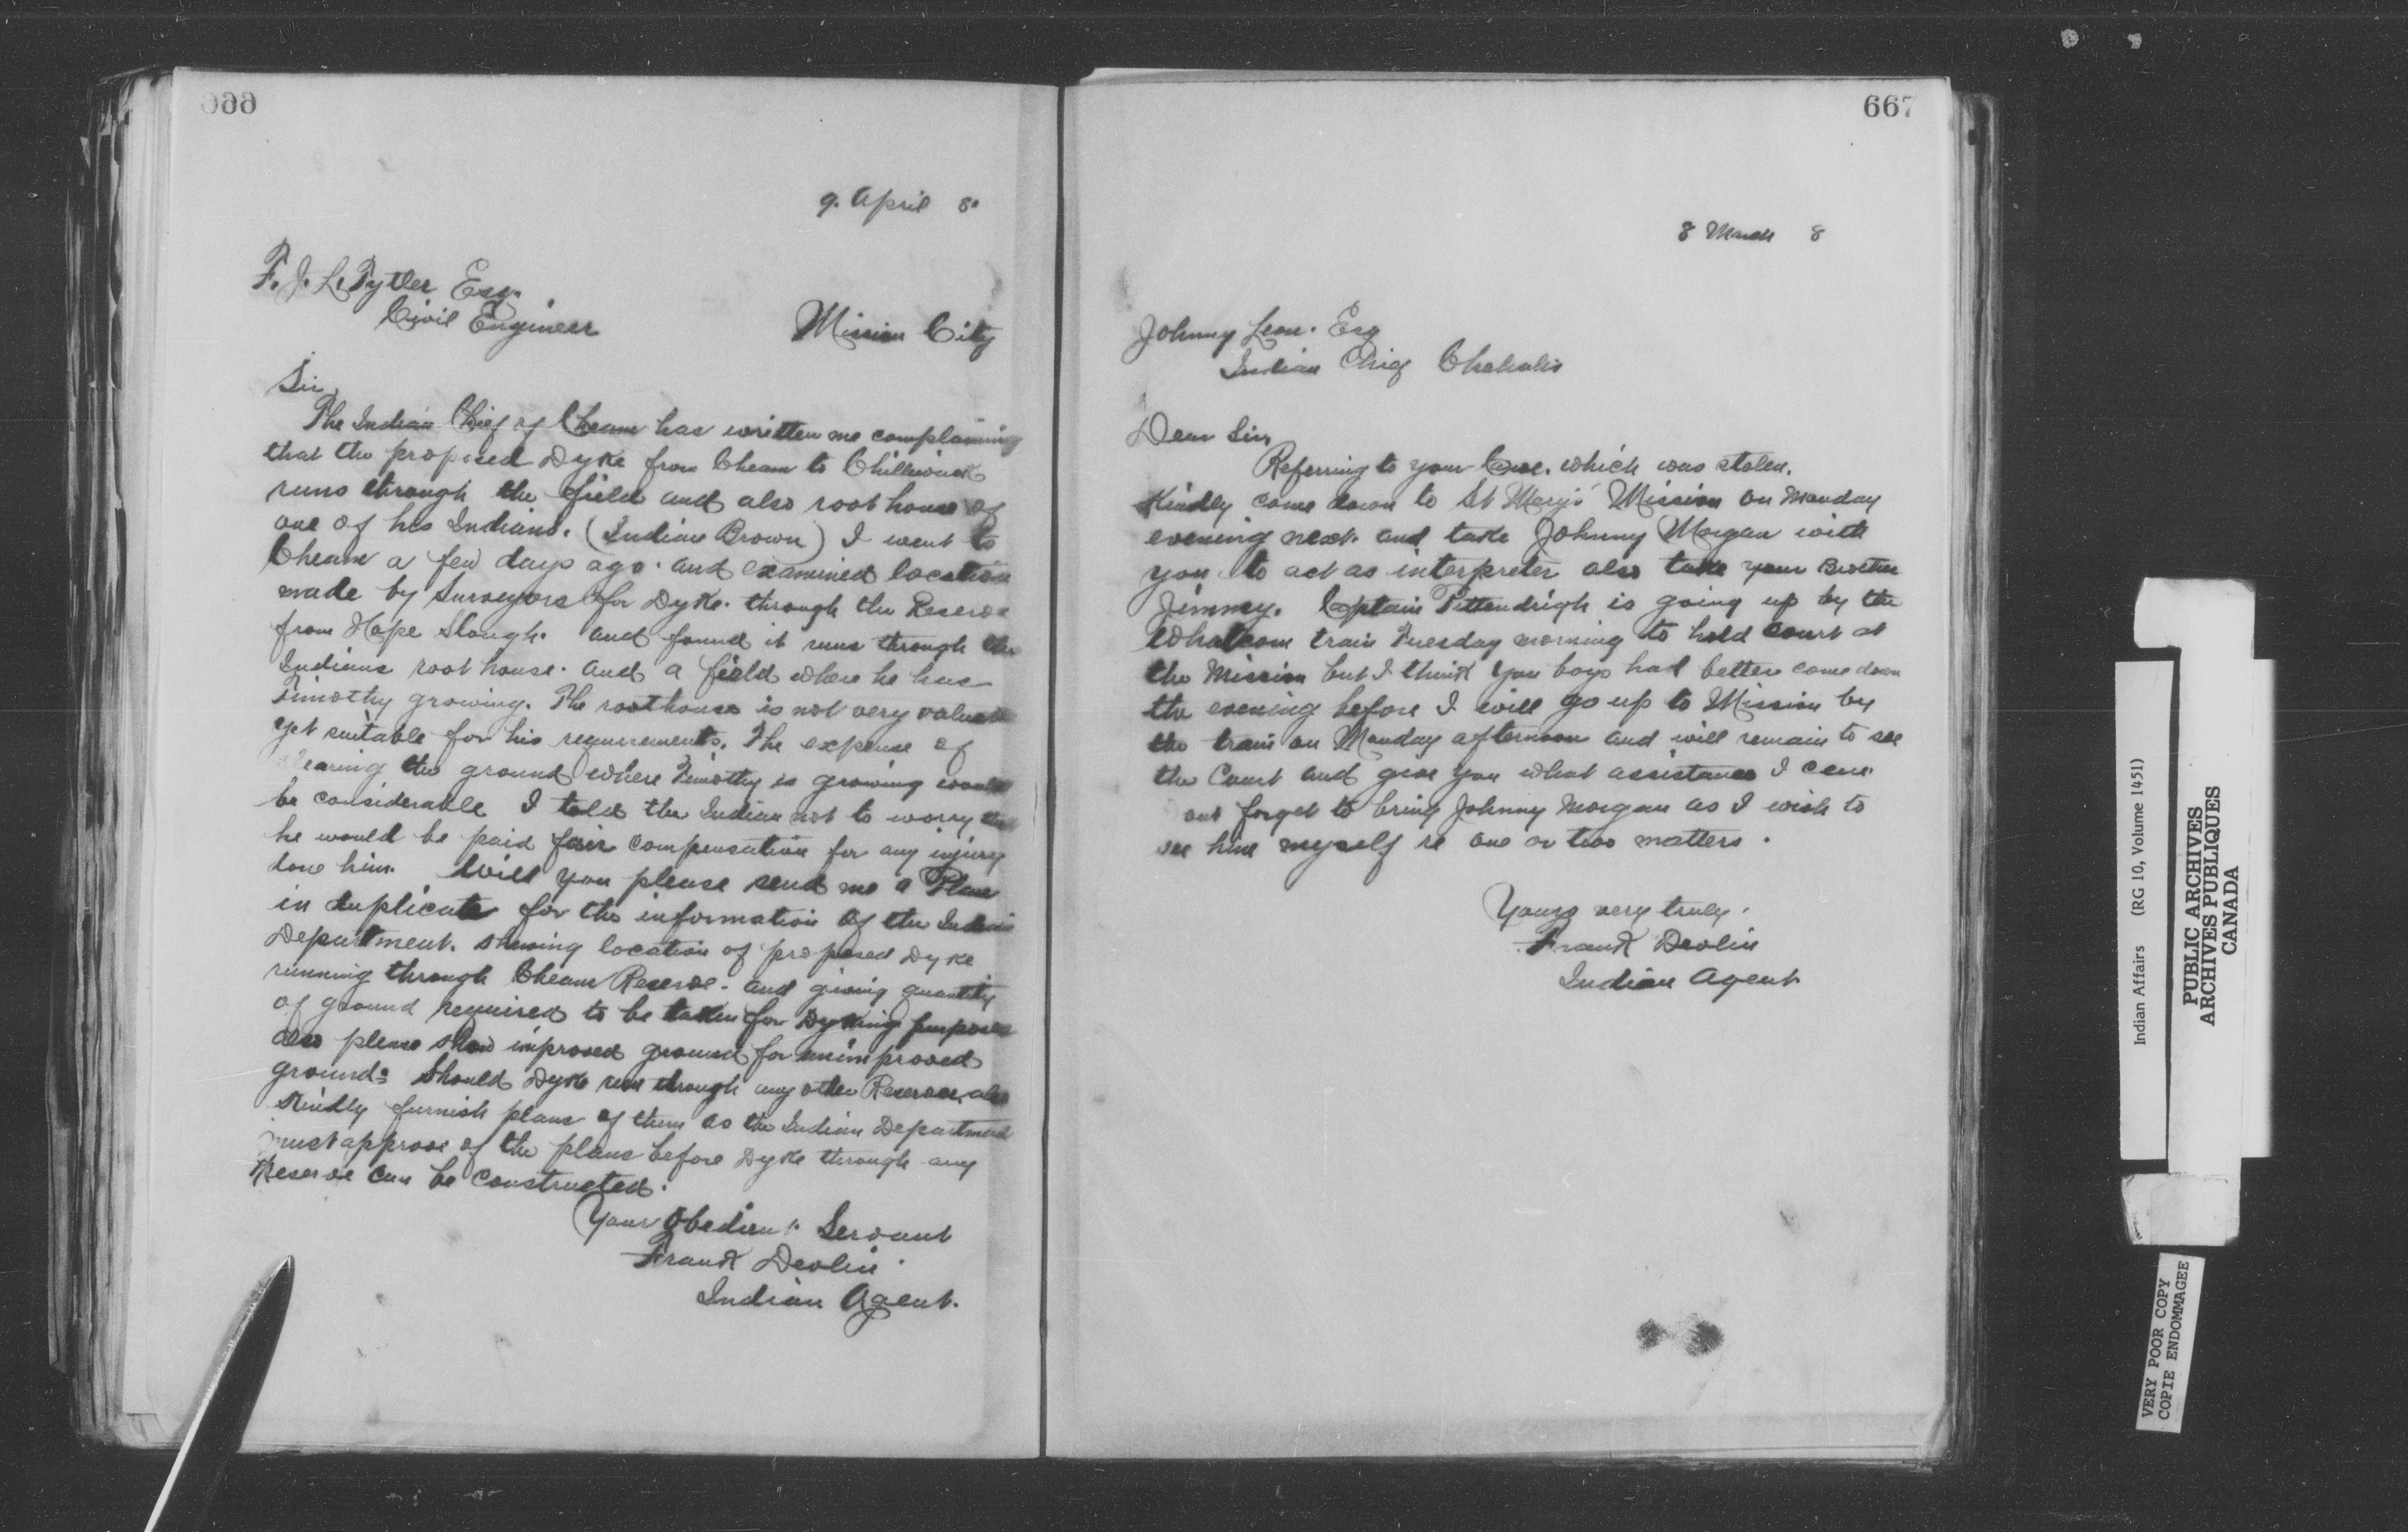 666
9. April 8.
F. J. L. Tytler Esq.
Civil Engineer
Mission City
Sir,
The Indian Chief of Cheam has written me complaining
that the proposed Dyke from Cheam to Chilliwack
runs through the field and also root house of
one of his Indians. (Indian Brown) I went to
Cheam a few days ago. and examined location
made by Surveyors for Dyke. through the Reserve
from Hope Slough. and found it runs through the
Indians root house. and a field where he has
Timothy growing. The roothouse is not very valuable
yet suitable for his requirements. The expense of
clearing the ground where Timothy is growing would
be considerable I told the Indian not to worry that
he would be paid fair compensation for any injury
done him. Will you please send me a Plan
in duplicate for the information of the Indian
Department. showing location of proposed Dyke
running through Cheam Reserve. and giving quantity
of ground required to be taken for Dyking purposes
also please show improved ground for unimproved
ground. Should Dyke run through any other Reserves, also
Kindly furnish plans of them as the Indian Department
must approve of the plans before Dyke through any
Reserve can be constructed.
Your Obedient Servant
Frank Devlin
Indian Agent.
667
8 March 8
Johnny Leon. Esq
Indian Chief Chehalis
Dear Sir,
Referring to your Canoe. which was stolen.
Kindly come down to St Mary's Mission on Monday
evening next. and take Johnny Morgan with
you to act as interpreter also take your Brother
Jimmy. Captain Pittendrigh is going up by the
Whatcom train Tuesday morning to hold court at
the Mission but I think you boys had better come down
the evening before I will go up to Mission by
the train on Monday afternoon and will remain to see
the Court and give you what assistance I can.
not forget to bring Johnny Morgan as I wish to
see him myself re one or two matters.
Yours very truly.
Frank Devlin
Indian Agent.
Indian Affairs (RG 10, Volume 1451)
PUBLIC ARCHIVES
ARCHIVES PUBLIQUES
CANADA
VERY POOR COPY
COPIE ENDOMMAGEE